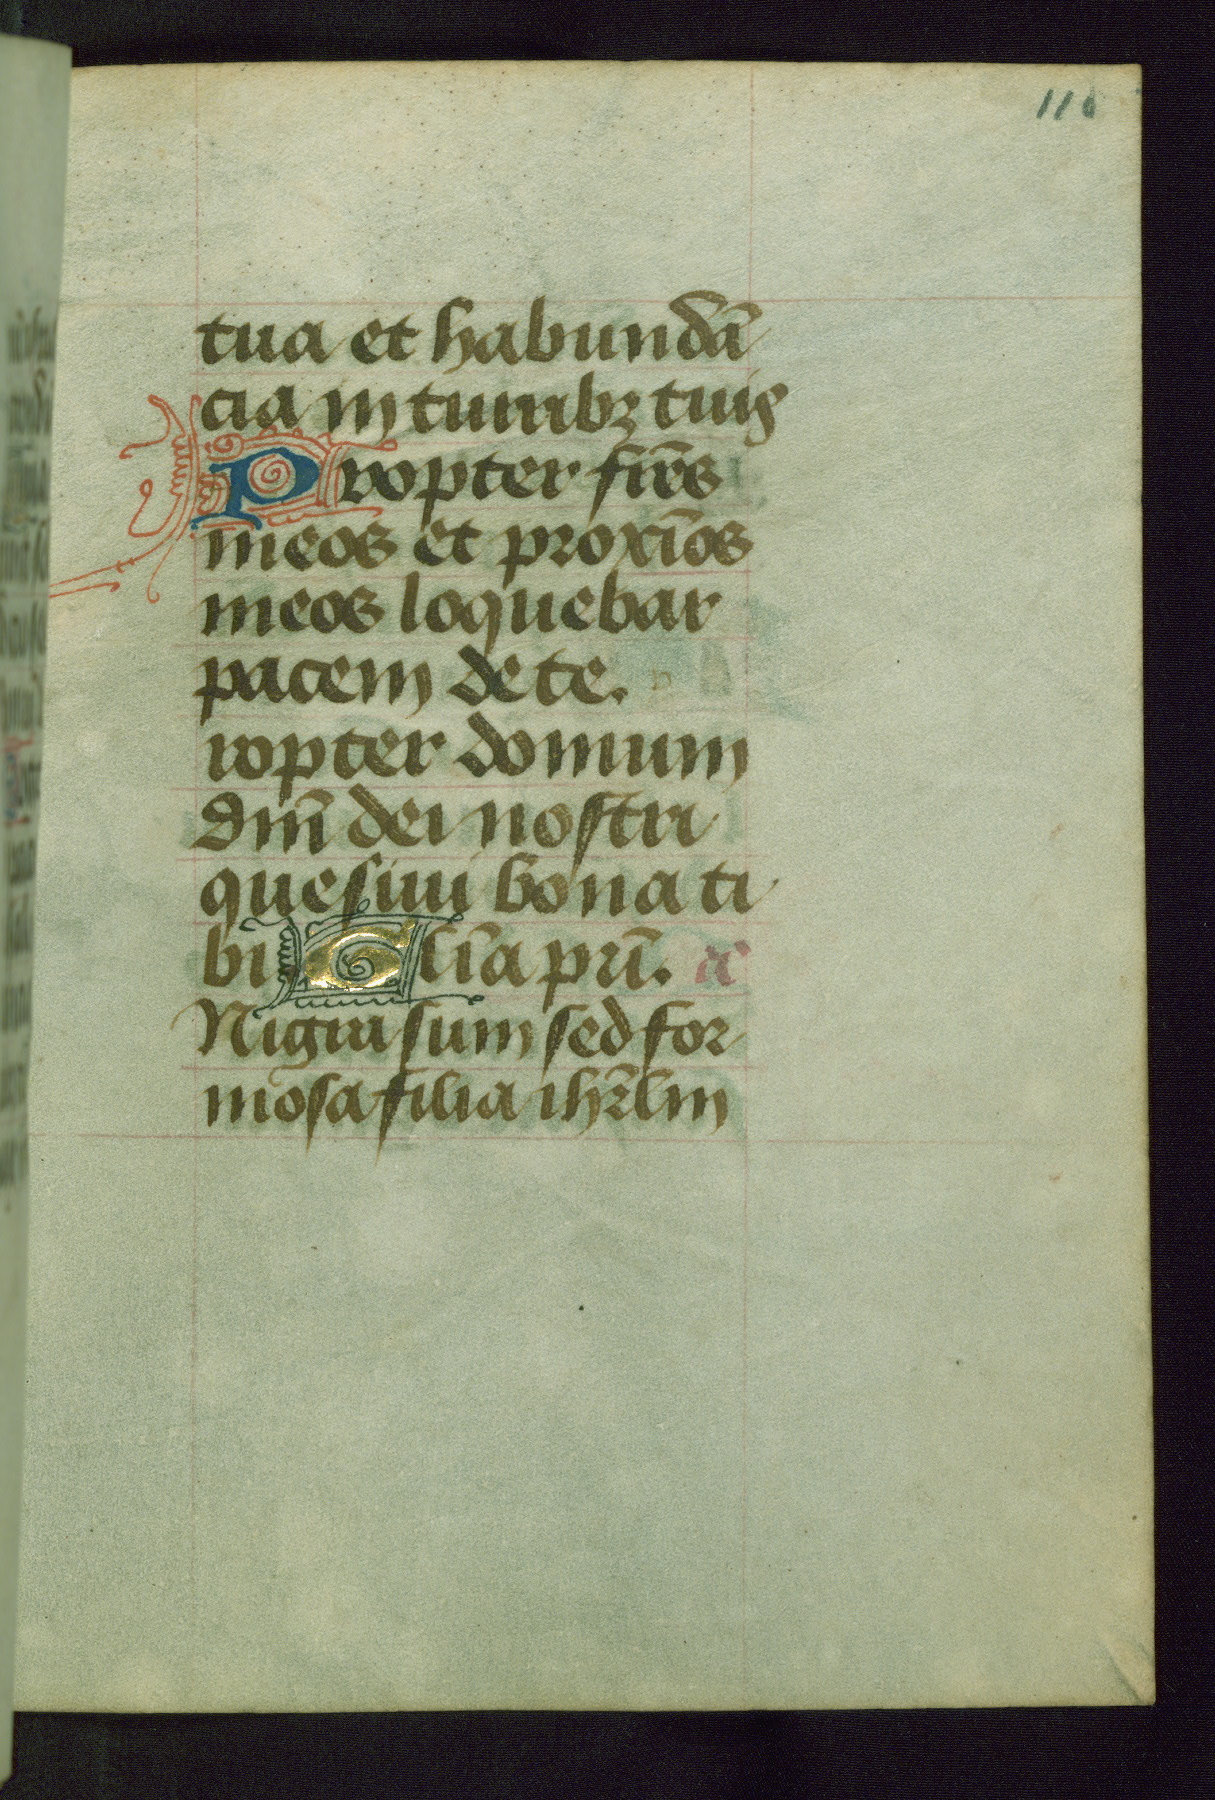 116
tua et habundā
cia in turribꝫ tuis
Propter frēs
meos et proxīos
meos loquebar
pacem de te.
ropter domum
dm̄ dei nostri
quesiui bona ti
bi Glīa prī. A
Nigra sum sed for
mosa filia ihrl̄m